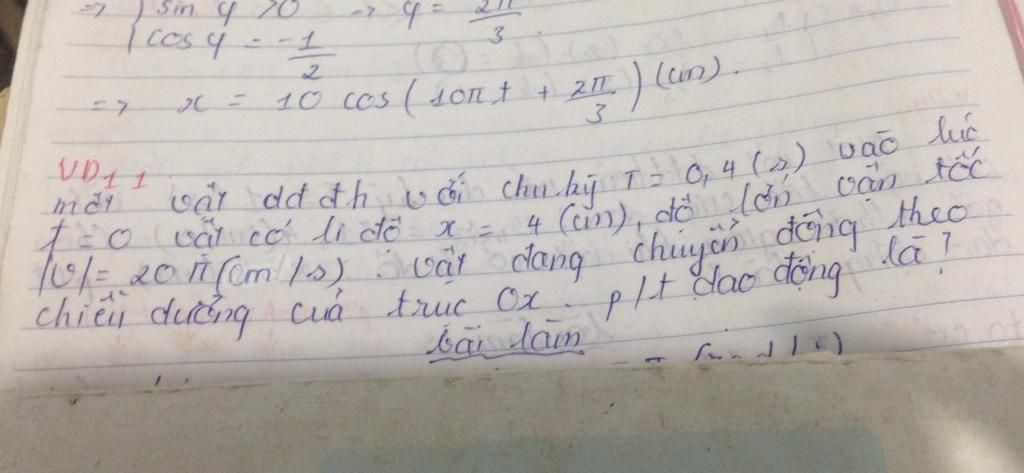 => { sin φ > 0 -> φ = 2π/3
cos φ = -1/2
=> x = 10 cos(10πt + 2π/3) (cm).
VD11.
một vật dđđh với chu kỳ T = 0,4 (s) vào lúc
t = 0 vật có li độ x = 4 (cm), độ lớn vận tốc
|v| = 20π (cm/s). vật đang chuyển động theo
chiều dương của trục Ox. p/t dao động là?
bài làm